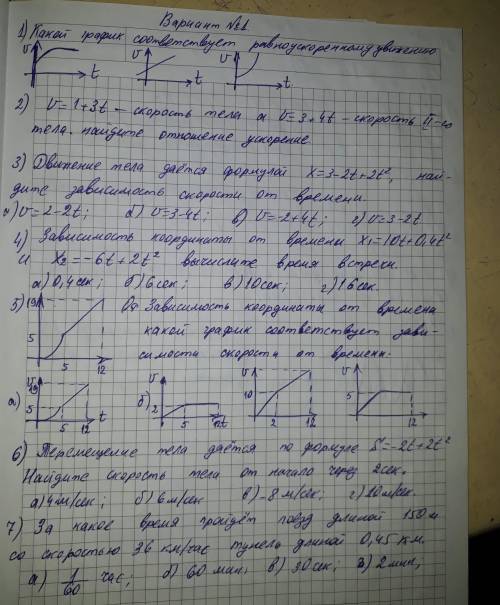 Вариант №1
1) Какой график соответствует равноускоренному движению
v v v
t t t
2) v=1+3t – скорость тела а v=3+4t – скорость II-го
тела. найдите отношение ускорение.
3) Движение тела даётся формулой x=3-2t+2t², най-
дите зависимость скорости от времени.
а) v=2-2t; б) v=3-4t; в) v=-2+4t; г) v=3-2t
4) Зависимость координаты от времени x₁=10t+0,4t²
и x₂=-6t+2t² вычислите время встречи.
а) 0,4 сек; б) 6 сек; в) 10 сек; г) 16 сек.
5) 19 От Зависимость координаты от времена
какой график соответствует зави-
5 симости скорости от времени.
5 12
а) v 19 5 5 12 t
б) v 2 5 12 t
v 10 2 12
v 5 12
6) Перемещение тела даётся по формуле S=-2t+2t²
Найдите скорость тела от начало через 2 сек.
а) 4 м/сек; б) 6 м/сек в) -8 м/сек; г) 10 м/сек.
7) За какое время пройдёт поезд длиной 150 м
со скоростью 36 км/час тунель длиной 0,45 км.
а) 1/60 час; б) 60 мин; в) 30 сек; г) 2 мин;